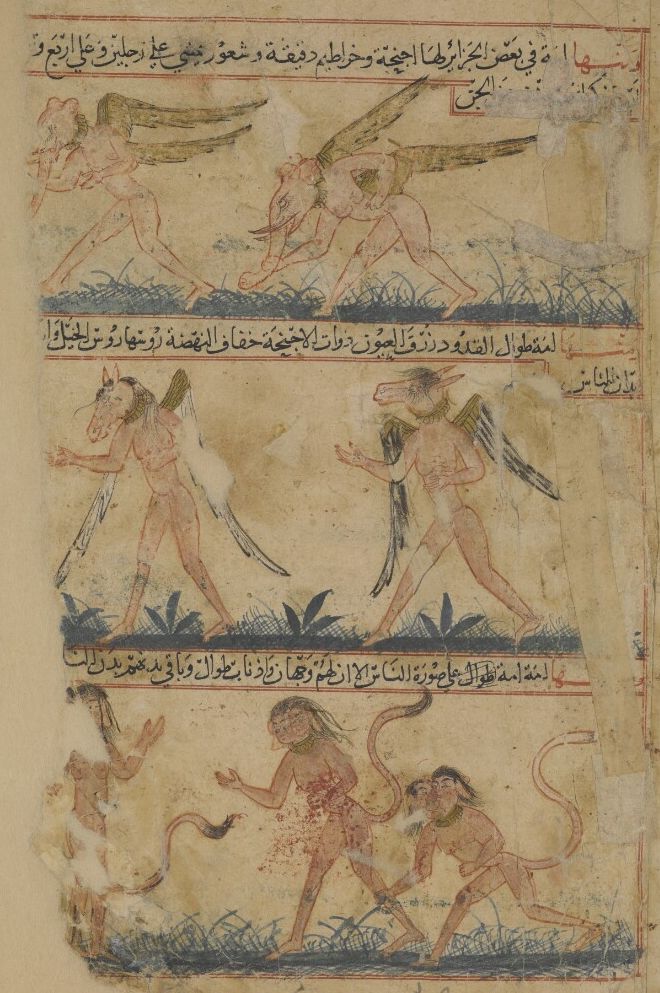 ومنها امة في بعض الجزائر لها اجنحة وخراطيم دقيقة وشعور تمشي علي رجلين وعلي اربع و
الجن
ومنها امة طوال القدود زرق العيون ذوات الاجنحة خفاف النهضة روسها روس الخيل وا
بدان الناس
ومنها امة امة طوال علي صورة الناس الا ان لهم وجهان واذناب طوال وباقي بدنهم بدن النا